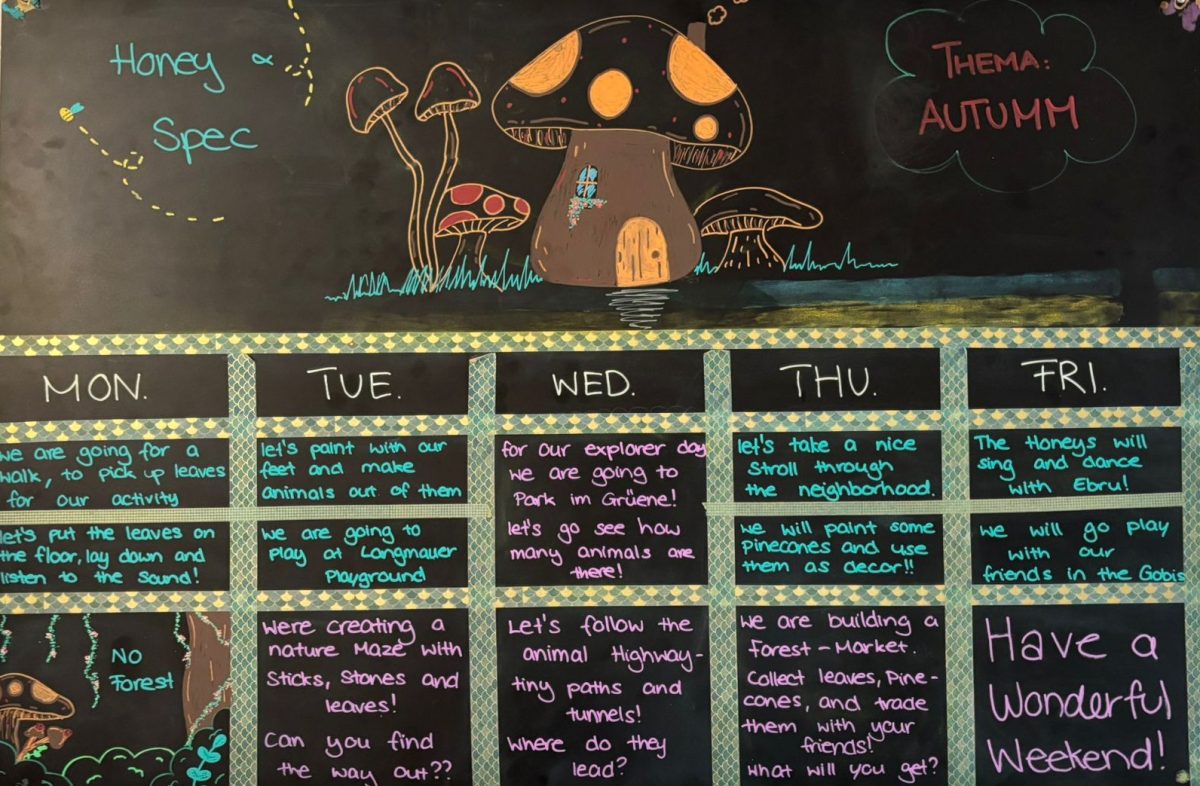 Honey &
Spec
THEMA:
AUTUMM
MON.
TUE.
WED.
THU.
FRI.
we are going for a
walk, to pick up leaves
for our activity
let's paint with our
feet and make
animals out of them
for our explorer day
we are going to
Park im Grüene!
let's go see how
many animals are
there!
let's take a nice
stroll through
the neighborhood.
The Honeys will
sing and dance
with Ebru!
let's put the leaves on
the floor, lay down and
listen to the sound!
we are going to
play at Langmauer
Playground
we will paint some
Pinecones and use
them as decor!!
we will go play
with our
friends in the Gobis
No
Forest
Were creating a
nature Maze with
Sticks, Stones and
leaves!
Can you find
the way out??
Let's follow the
animal Highway-
tiny paths and
tunnels!
Where do they
lead?
we are building a
Forest-Market.
Collect leaves, Pine-
cones, and trade
them with your
friends!
what will you get?
Have a
Wonderful
Weekend!